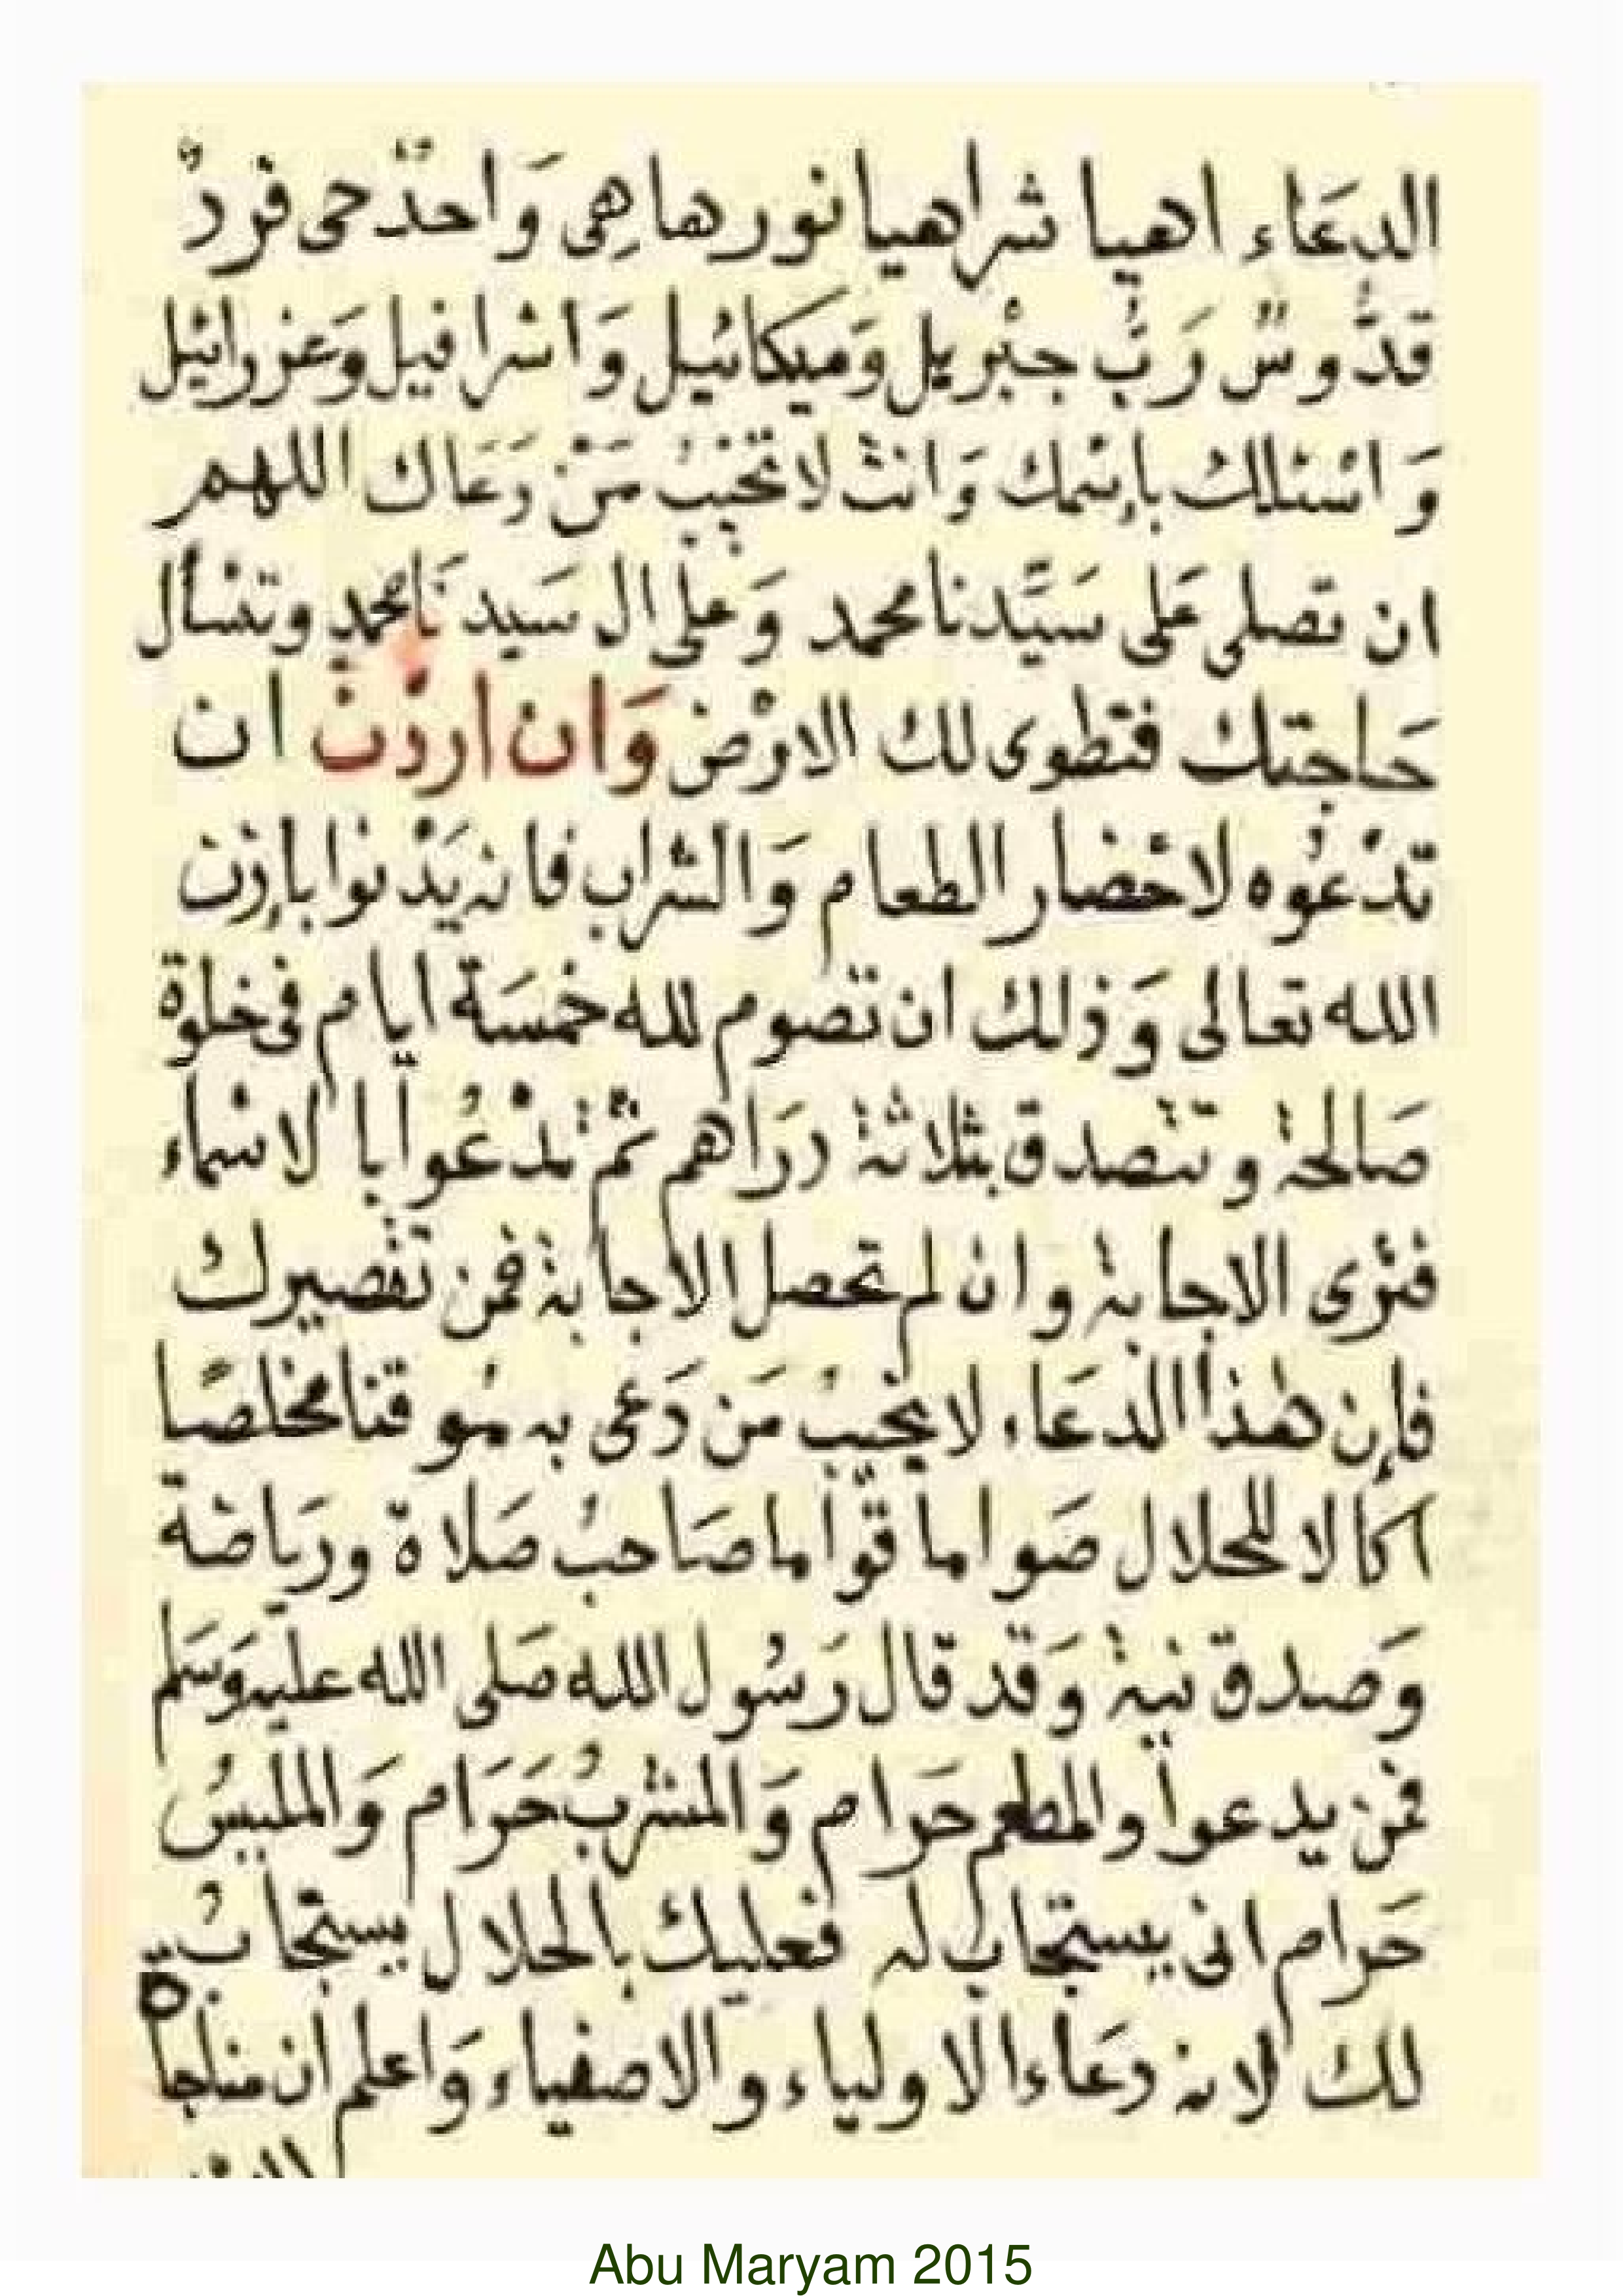 الدعَاء اهيا شراهيا نور هاهِى وَاحدٌ حى فردٌ
قدُّوسٌ رَبُّ جبْريل وَميكائيل وَاسْرافيل وَعزرائيل
وَاسْئلكُ بإسْمك وَانتْ لا تخيّبُ مَنْ دَعَاك اللهم
ان تصلى عَلى سَيّدنا محمد وَعلى ال سَيدنَا محمد وتسْأل
حَاجتك فتطوى لك الارْض وَان اردْتَ ان
تدْعوُه لاحْضار الطعام وَالشراب فانه يَدْنوا بإذن
الله تعالى وَذلك ان تصوم لله خمسَة ايام فى خلوة
صَالحة وتتصدق بثلاثة دَرَاهم ثم تدْعُوا با لاسْماء
فترى الاجابة وان لم تحصل الاجابة فمن تقْصيرك
فإن هذا الدعَاء لا يخيبُ مَن دَعى به مُوقنا مخلصًا
اكالا للحلال صَواما قوّاما صَاحبُ صَلاة وريَاضة
وَصدق نية وَقد قال رَسُول الله صَلى الله عليه وَسَلم
فمن يدعوا والمطعم حَرام وَالمشربُ حَرَام وَالملبسُ
حَرام انى يستجاب له فعليك بالحلال يستجابُ
لك لانه دعَاء الاولياء والاصفياء وَاعلم ان مناجاة
Abu Maryam 2015